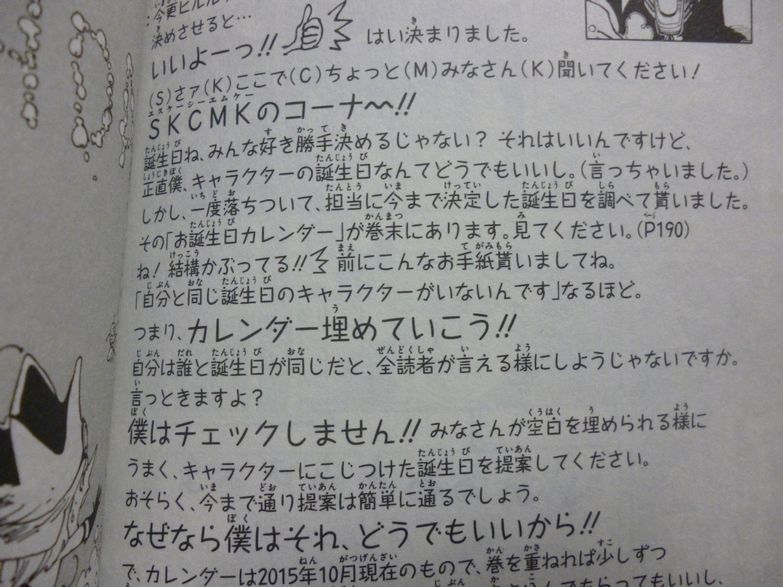 今更ヒルル
決めさせると…
いいよーっ!! はい決まりました。
(S)さァ(K)ここで(C)ちょっと(M)みなさん(K)聞いてください!
SKCMKのコーナ〜!!
誕生日ね、みんな好き勝手決めるじゃない? それはいいんですけど、
正直僕、キャラクターの誕生日なんてどうでもいいし。(言っちゃいました。)
しかし、一度落ちついて、担当に今まで決定した誕生日を調べて貰いました。
その「お誕生日カレンダー」が巻末にあります。見てください。(P190)
ね! 結構かぶってる!! 前にこんなお手紙貰いましてね。
「自分と同じ誕生日のキャラクターがいないんです」なるほど。
つまり、カレンダー埋めていこう!!
自分は誰と誕生日が同じだと、全読者が言える様にしようじゃないですか。
言っときますよ?
僕はチェックしません!! みなさんが空白を埋められる様に
うまく、キャラクターにこじつけた誕生日を提案してください。
おそらく、今まで通り提案は簡単に通るでしょう。
なぜなら僕はそれ、どうでもいいから!!
で、カレンダーは2015年10月現在のもので、巻を重ねれば少しずつ